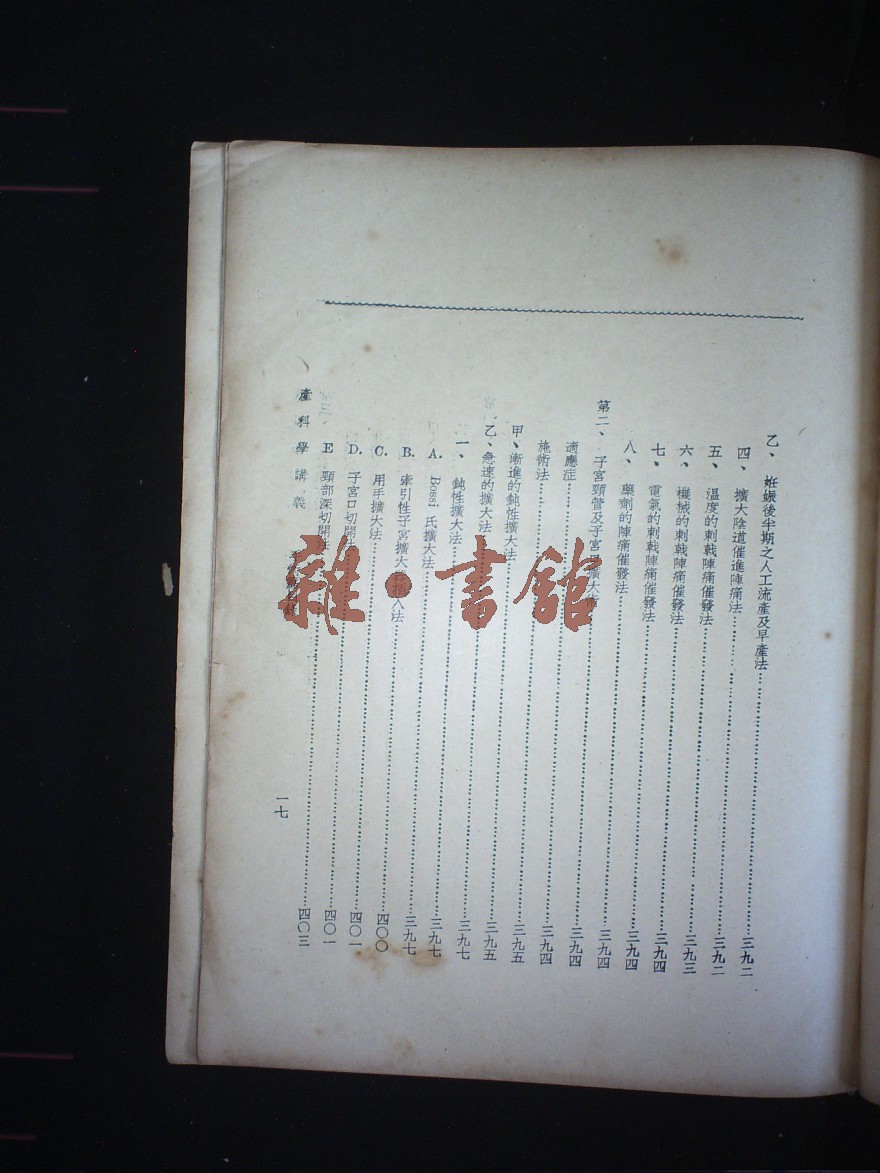 乙、妊娠後半期之人工流產及早產法……三九二
四、擴大陰道催進陣痛法……三九二
五、溫度的刺戟陣痛催發法……三九三
六、機械的刺戟陣痛催發法……三九四
七、電氣的刺戟陣痛催發法……三九四
八、藥劑的陣痛催發法……三九四
第二、子宮頸管及子宮擴大……三九四
適應症……三九四
施術法……三九五
甲、漸進的鈍性擴大法……三九五
乙、急速的擴大法……三九七
一、鈍性擴大法……三九七
A. Bossi 氏擴大法……三九七
B. 牽引性子宮擴大入法……四〇〇
C. 用手擴大法……四〇一
D. 子宮口切開……四〇一
E 頸部深切開法……四〇三
產科學講義
一七
雜·書館